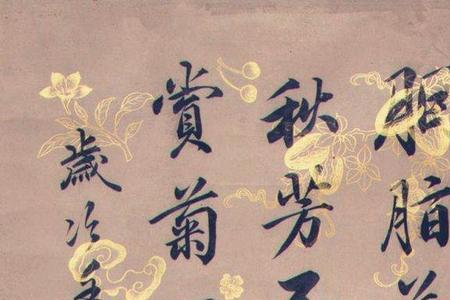 胭脂
秋芳
賞菊
歲次